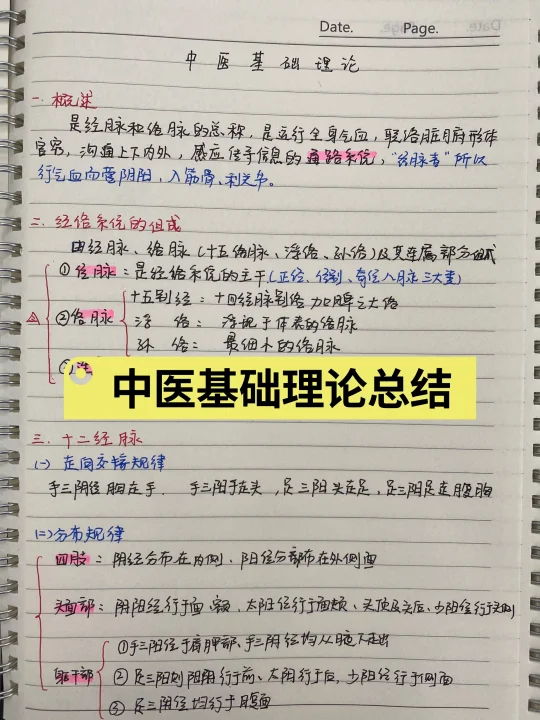 Date. Page.
中医基础理论
一.概念
是经脉和络脉的总称,是运行全身气血,联络脏腑形体
官窍,沟通上下内外,感应传导信息的通路系统,"经脉者"所以
行气血而营阴阳,入筋骨、利关节。
二、经络系统的组成
由经脉、络脉(十五络脉、浮络、孙络)及其连属部分组成
①经脉:是经络系统的主干(正经、经别、奇经八脉三大类)
②络脉
十五别络:十四经脉别络加脾之大络
浮络:浮现于体表的络脉
孙络:最细小的络脉
③连
中医基础理论总结
三.十二经脉
(一)走向交接规律
手三阴经胸走手. 手三阳手走头,足三阳头走足,足三阴足走腹胸
(二)分布规律
四肢:阴经分布在内侧、阳经分部布在外侧面
头面部:阳明经行于面、额,太阳经行于面颊、头顶及头后、少阳经行于头侧
躯干部
①手三阳经于肩胛部、手三阴经均从腋下走出
②足三阳则阳明行于前、太阳行于后,少阳经行于侧面
③足三阴经均行于腹面